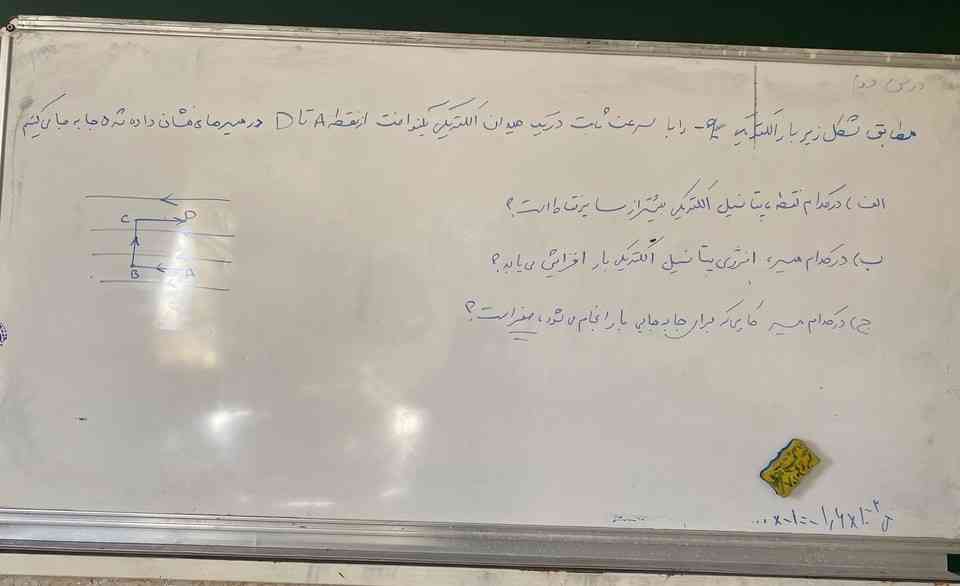 درس دوم
مطابق شکل زیر بار الکتریکی -q را با سرعت ثابت در یک میدان الکتریکی یکنواخت از نقطه A تا D در مسیرهای نشان داده شده جا به جا می‌کنیم
الف) در کدام نقطه، پتانسیل الکتریکی بیشتر از سایر نقاط است؟
ب) در کدام مسیر، انرژی پتانسیل الکتریکی بار افزایش می‌یابد؟
ج) در کدام مسیر کاری که برای جابه‌جایی بار انجام می‌شود، صفر است؟
C D
B A